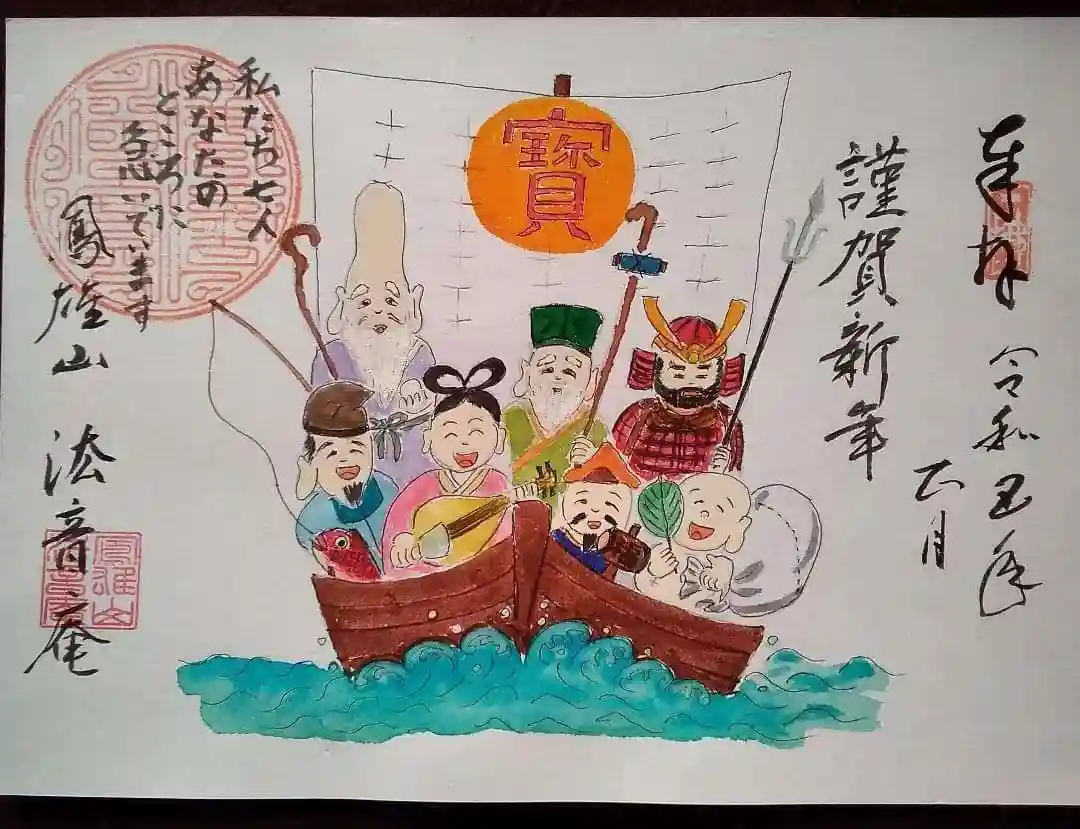 奉拝
令和五年
正月
謹賀新年
寶
私たち七人
あなたの
ところに
急いでいます
鳳雄山 法音庵
鳳雄山